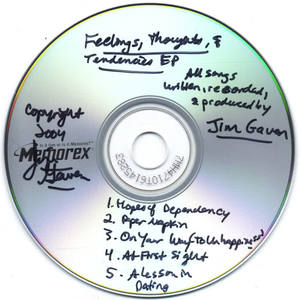 Feelings, Thoughts, &
Tendencies EP
All songs
written, recorded,
& produced by
Jim Gaven
Copyright
2004
Memorex
Is it live or is it Memorex?
Gaven
7MH4710T6145283
1. Hopes of Dependency
2. Paper Napkin
3. On Your Way to Unhappiness
4. At First Sight
5. A Lesson in
Dating